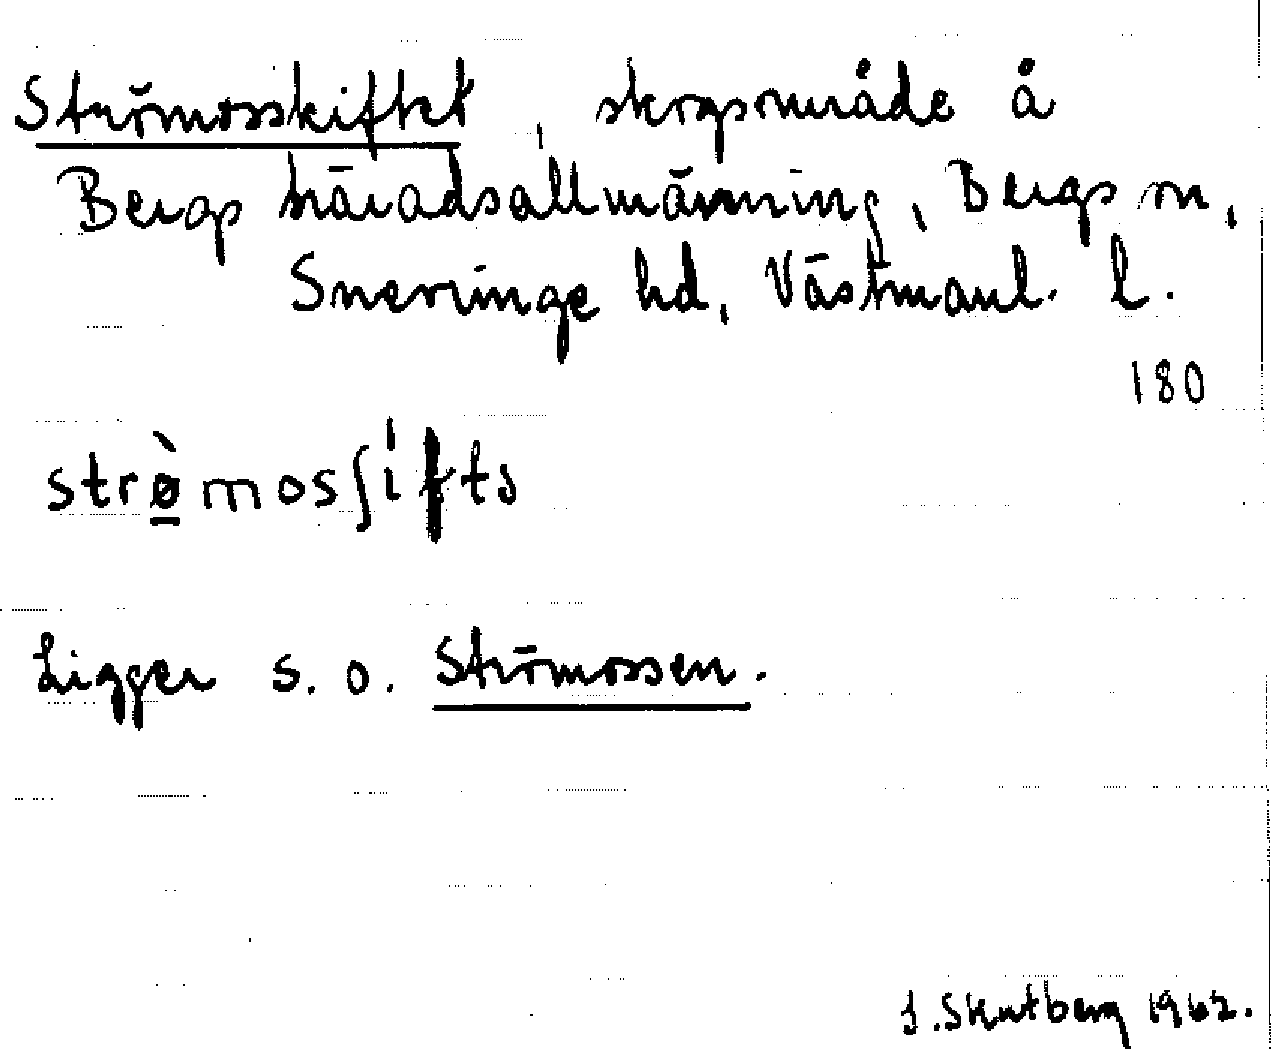 Strömosskiftet, skogsområde å
Bergs häradsallmänning, Bergs sn,
Snevringe hd, Västmanl. l.
180
strø̠̀mosʃiftə
Ligger s. o. Strömossen.
J. Skutberg 1962.